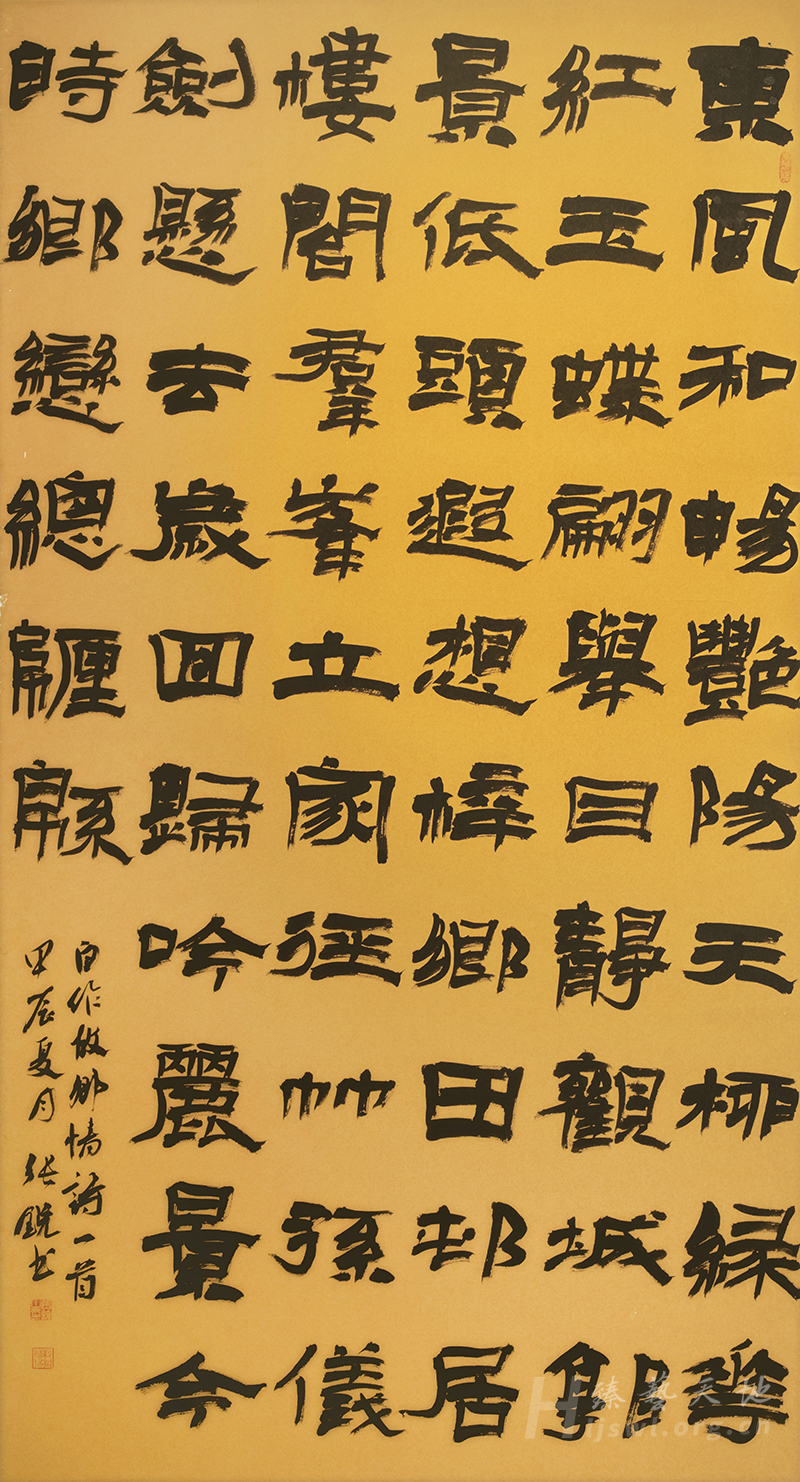 東風和暢艷陽天柳緑華
紅玉蝶翩舉目靜觀城郭
景低頭遐想梓鄉田邨居
樓閣羣峯立家徑竹孫儀
劍懸去歲回歸吟麗景今
時鄉戀總纏緜
自作故鄉情詩一首
甲辰夏月張銳書
臻藝天地